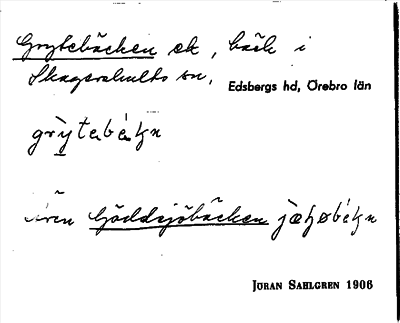 Grytebäcken ek, bäck i
Skagersholts sn, Edsbergs hd, Örebro län
grỳtəbɛ́kn
även Gäddsjöbäcken
JÖRAN SAHLGREN 1906